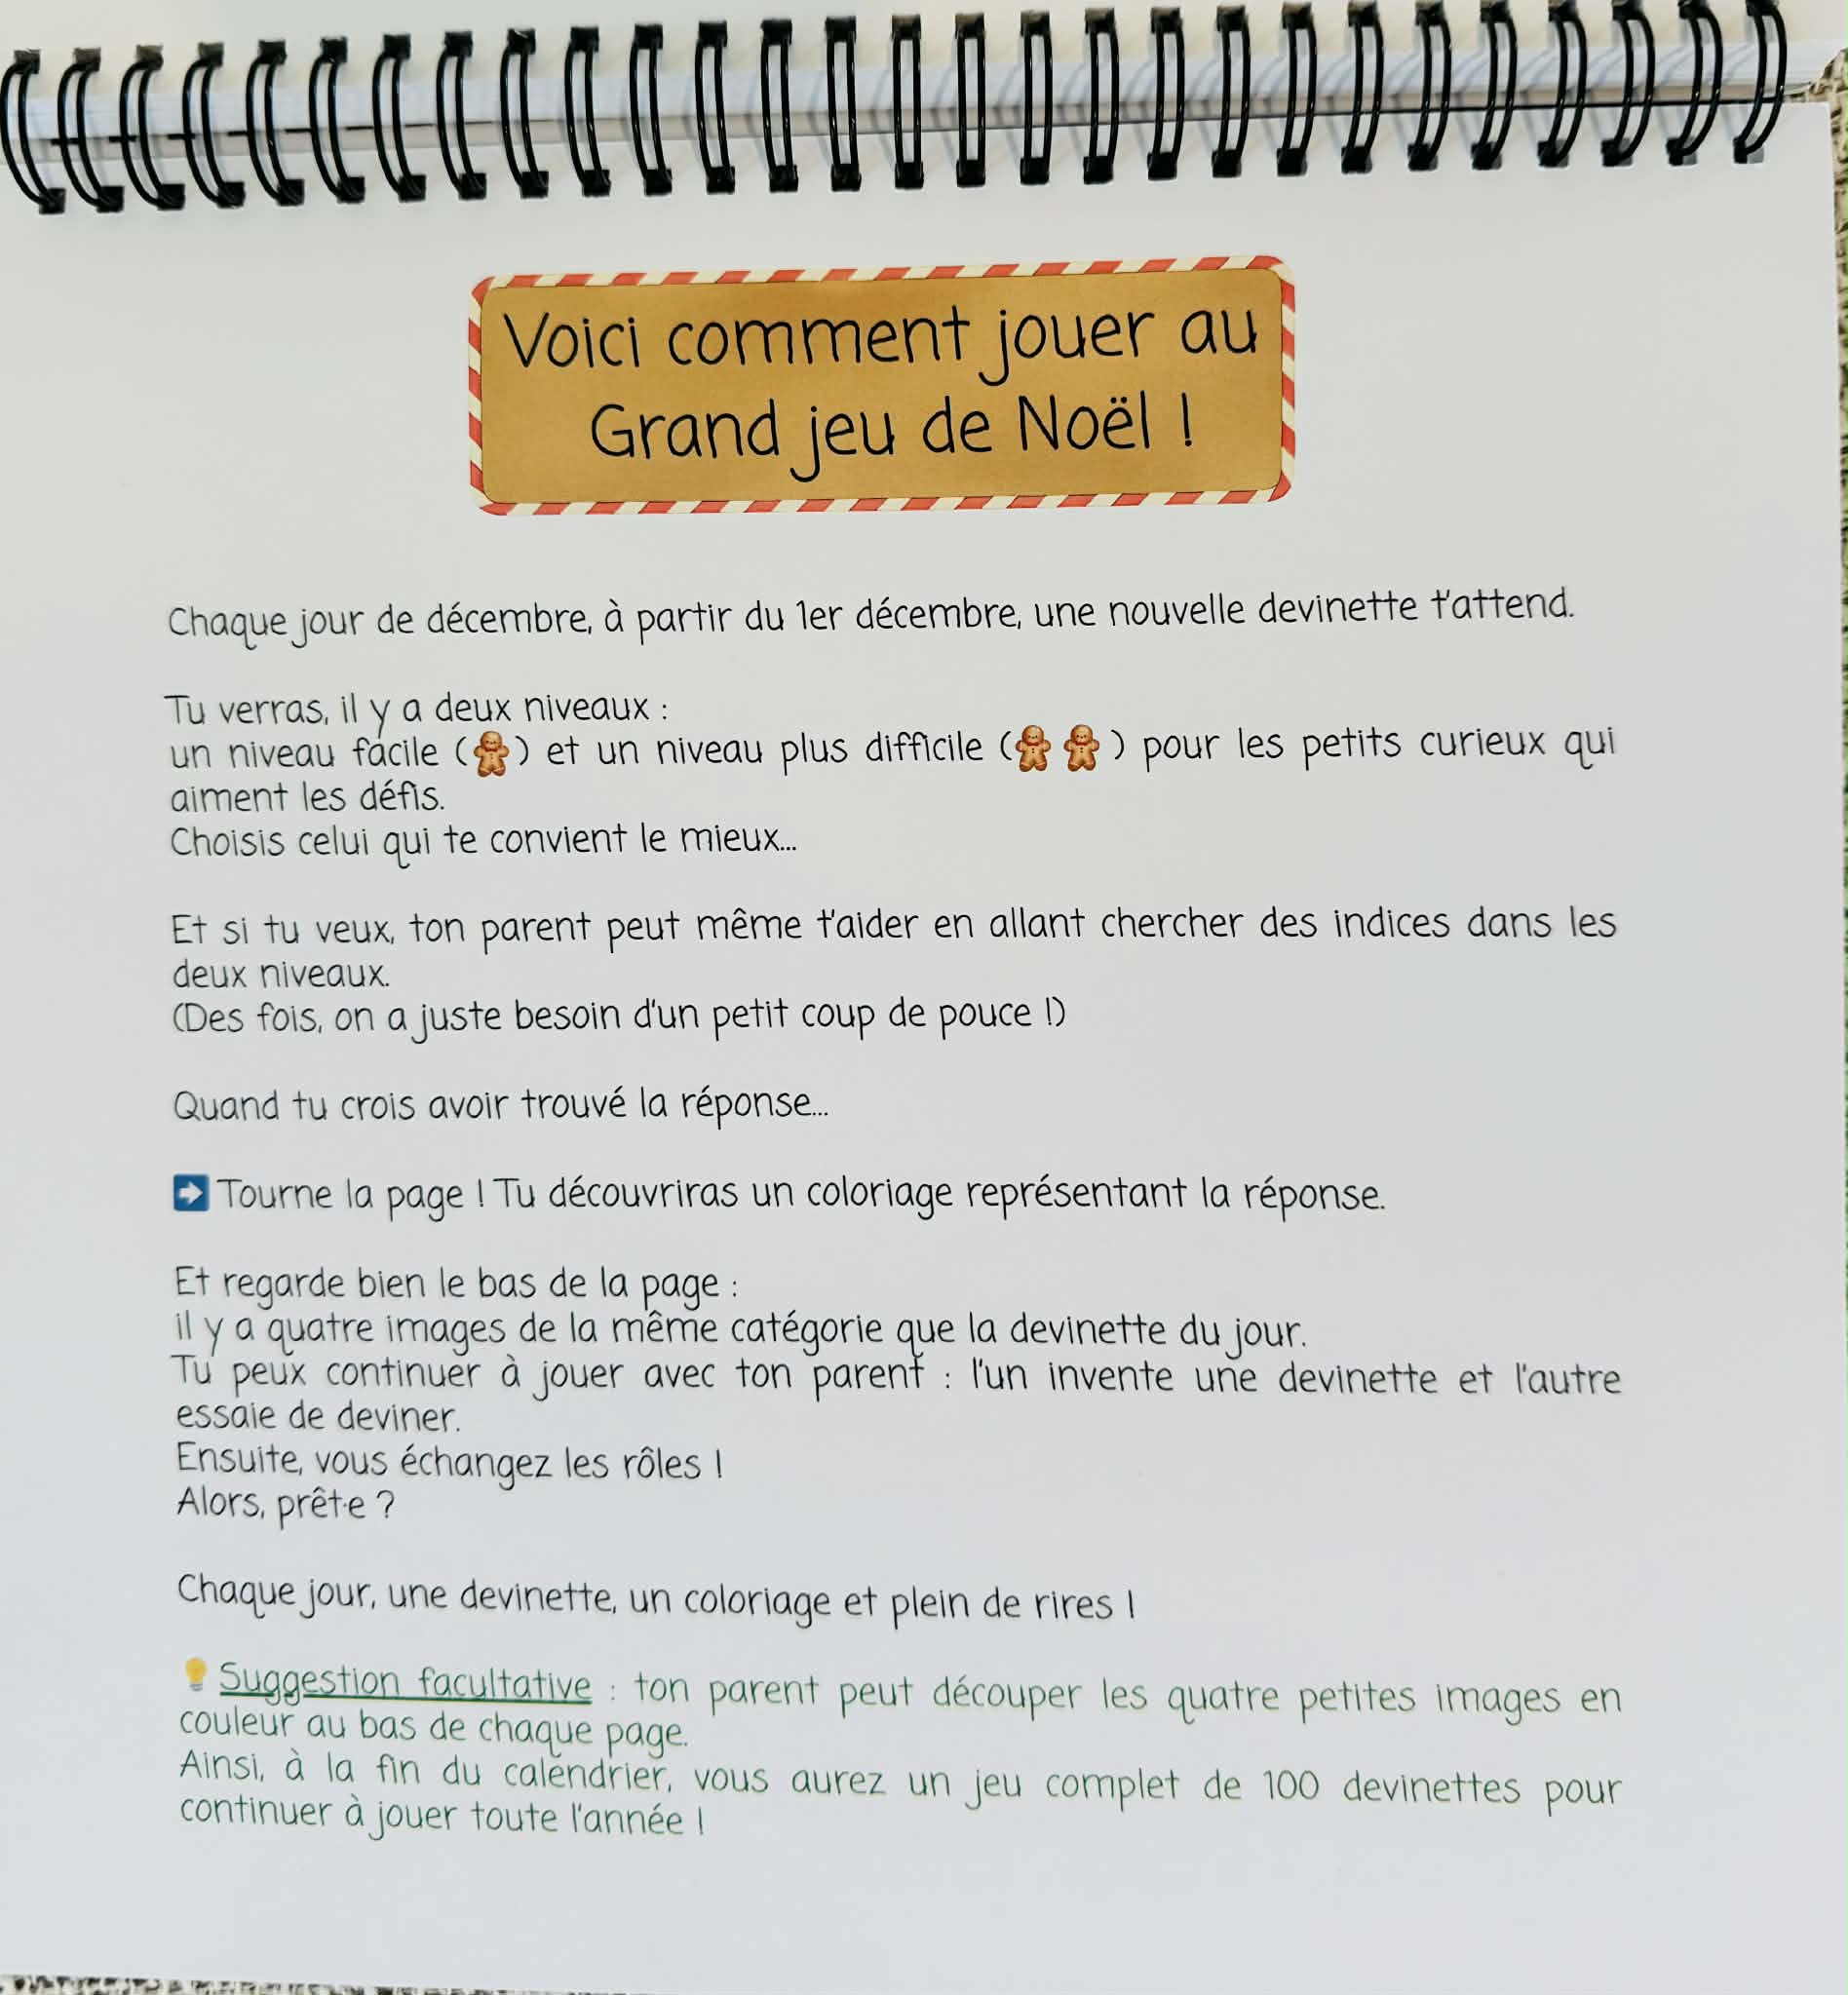 Voici comment jouer au
Grand jeu de Noël !
Chaque jour de décembre, à partir du 1er décembre, une nouvelle devinette t'attend.
Tu verras, il y a deux niveaux :
un niveau facile ( ) et un niveau plus difficile ( ) pour les petits curieux qui
aiment les défis.
Choisis celui qui te convient le mieux...
Et si tu veux, ton parent peut même t'aider en allant chercher des indices dans les
deux niveaux.
(Des fois, on a juste besoin d'un petit coup de pouce !)
Quand tu crois avoir trouvé la réponse...
➡ Tourne la page ! Tu découvriras un coloriage représentant la réponse.
Et regarde bien le bas de la page :
il y a quatre images de la même catégorie que la devinette du jour.
Tu peux continuer à jouer avec ton parent : l'un invente une devinette et l'autre
essaie de deviner.
Ensuite, vous échangez les rôles !
Alors, prêt·e ?
Chaque jour, une devinette, un coloriage et plein de rires !
Suggestion facultative : ton parent peut découper les quatre petites images en
couleur au bas de chaque page.
Ainsi, à la fin du calendrier, vous aurez un jeu complet de 100 devinettes pour
continuer à jouer toute l'année !